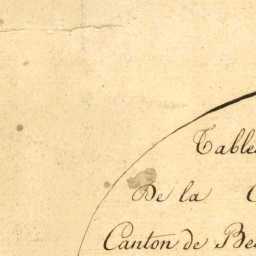 Table
De la C
Canton de Be